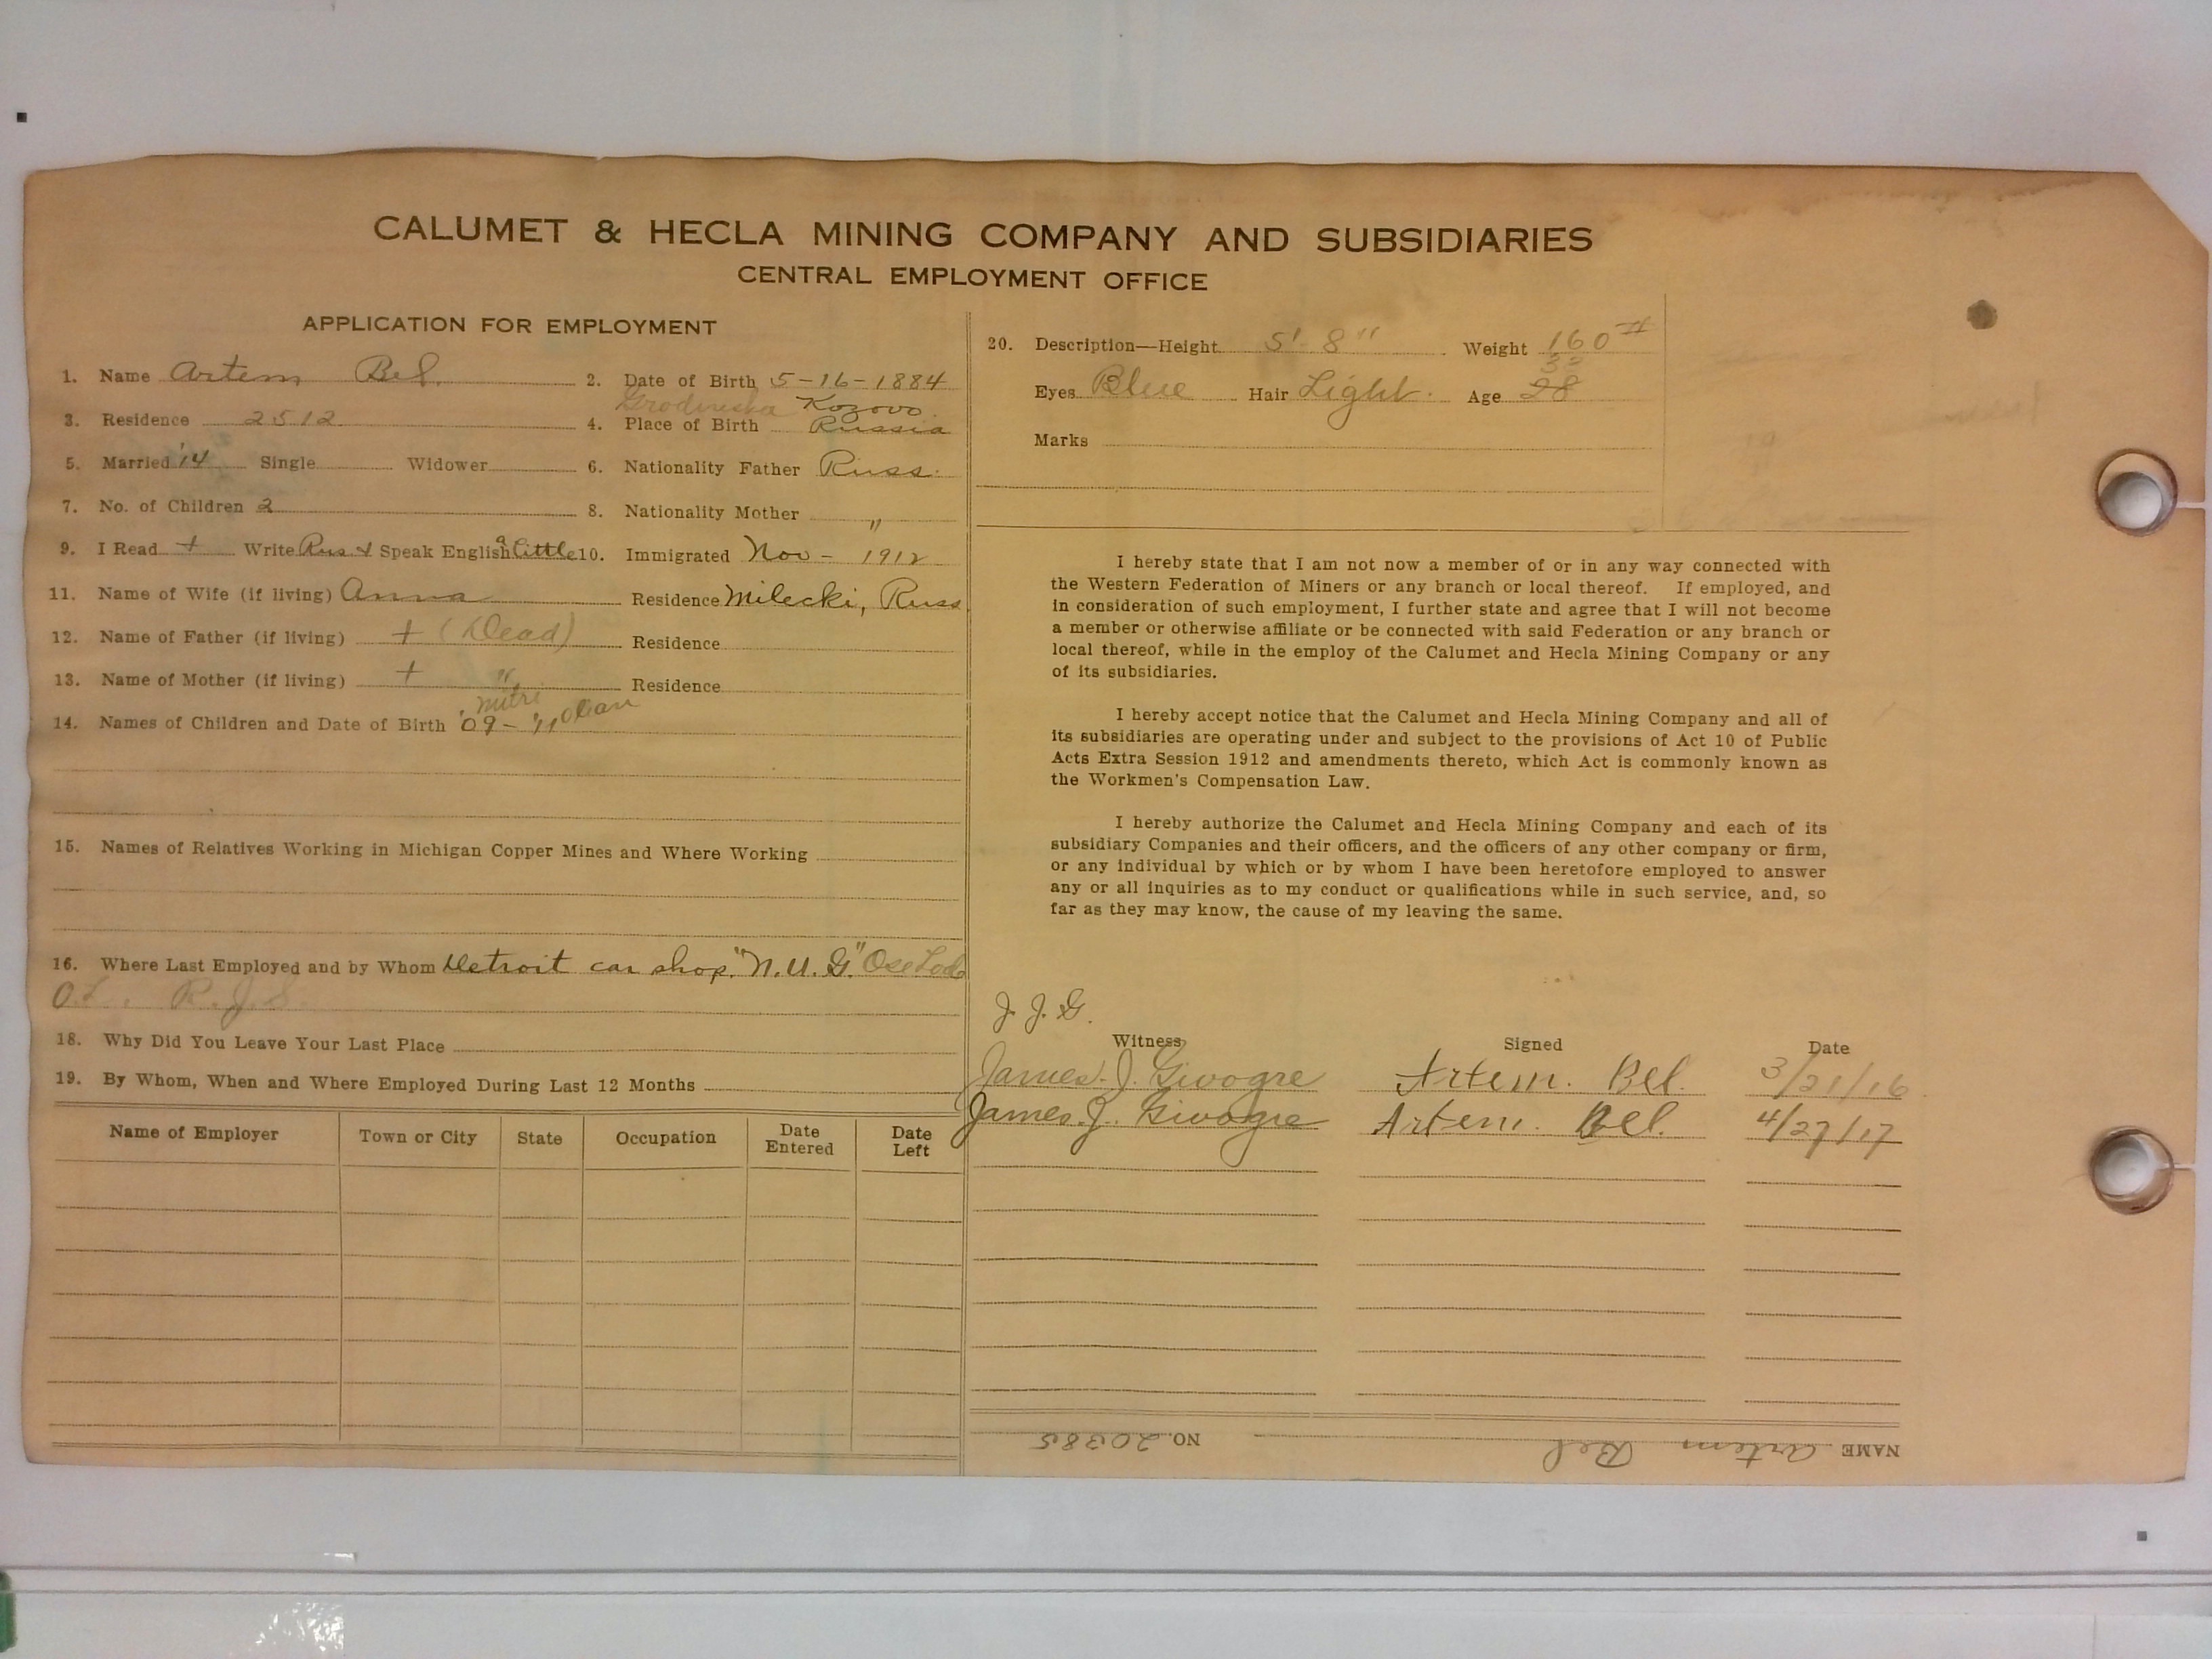 CALUMET & HECLA MINING COMPANY AND SUBSIDIARIES
CENTRAL EMPLOYMENT OFFICE
APPLICATION FOR EMPLOYMENT
1. Name Artem Bel. 2. Date of Birth 5-16-1884
Kozovo.
3. Residence 2512 4. Place of Birth Russia
5. Married '14 Single Widower 6. Nationality Father Russ.
7. No. of Children 2 8. Nationality Mother "
9. I Read + Write Rus + Speak English a little 10. Immigrated Nov - 1912
11. Name of Wife (if living) Anna Residence Milecki, Russ
12. Name of Father (if living) + (Dead) Residence
13. Name of Mother (if living) + " Residence
mitri
14. Names of Children and Date of Birth '09 - '11
15. Names of Relatives Working in Michigan Copper Mines and Where Working
16. Where Last Employed and by Whom Detroit car shop. "N.U.G."
R.J.S.
18. Why Did You Leave Your Last Place
19. By Whom, When and Where Employed During Last 12 Months
Name of Employer Town or City State Occupation Date Entered Date Left
20. Description—Height 5'-8" Weight 160#
32
Eyes Blue Hair Light. Age 28
Marks
I hereby state that I am not now a member of or in any way connected with
the Western Federation of Miners or any branch or local thereof. If employed, and
in consideration of such employment, I further state and agree that I will not become
a member or otherwise affiliate or be connected with said Federation or any branch or
local thereof, while in the employ of the Calumet and Hecla Mining Company or any
of its subsidiaries.
I hereby accept notice that the Calumet and Hecla Mining Company and all of
its subsidiaries are operating under and subject to the provisions of Act 10 of Public
Acts Extra Session 1912 and amendments thereto, which Act is commonly known as
the Workmen's Compensation Law.
I hereby authorize the Calumet and Hecla Mining Company and each of its
subsidiary Companies and their officers, and the officers of any other company or firm,
or any individual by which or by whom I have been heretofore employed to answer
any or all inquiries as to my conduct or qualifications while in such service, and, so
far as they may know, the cause of my leaving the same.
J.J.G.
Witness Signed Date
James. J. Givogre Artem. Bel. 3/21/16
James. J. Givogre Artem. Bel. 4/27/17
NAME Artem Bel NO. 20385